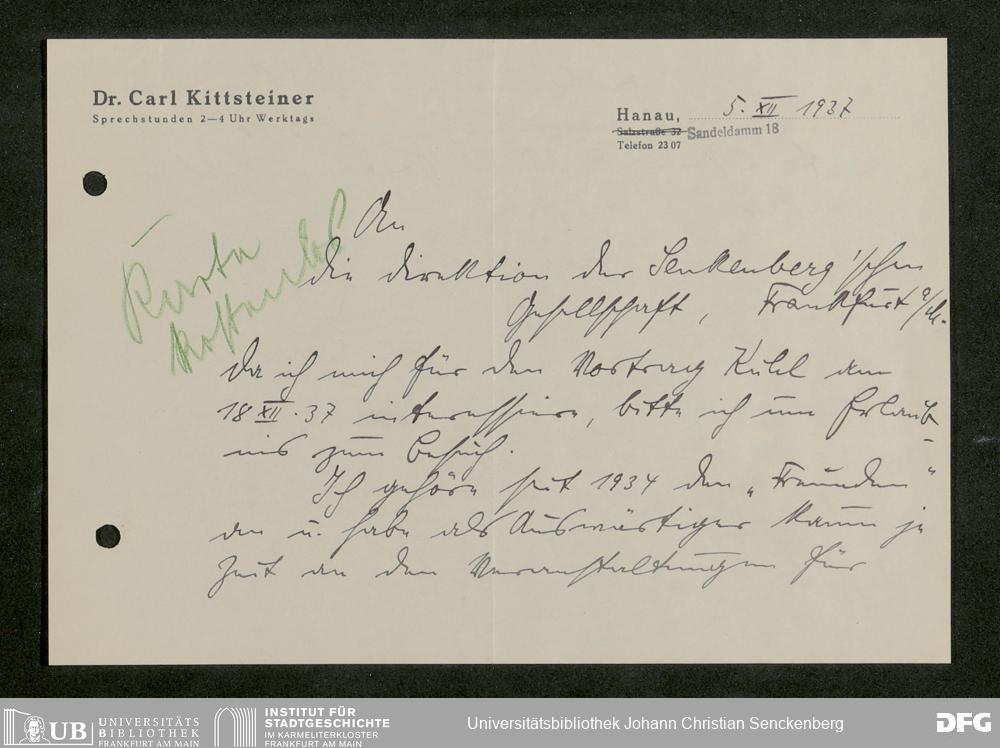 Dr. Carl Kittsteiner
Sprechstunden 2—4 Uhr Werktags
Hanau, 5. XII 1937
Salzstraße 32 Sandeldamm 18
Telefon 23 07
Karte
kostenlos
An
die Direktion der Senkenberg'schen
Gesellschaft, Frankfurt a/M.
Da ich mich für den Vortrag Kühl am
18 XII. 37 interessiere, bitte ich um Erlaub-
nis zum Besuch.
Ich gehöre seit 1934 den „Freunden"
an u. habe als Auswärtiger kaum je
Zeit an den Veranstaltungen für
UB
UNIVERSITÄTS
BIBLIOTHEK
FRANKFURT AM MAIN
INSTITUT FÜR
STADTGESCHICHTE
IM KARMELITERKLOSTER
FRANKFURT AM MAIN
Universitätsbibliothek Johann Christian Senckenberg
DFG